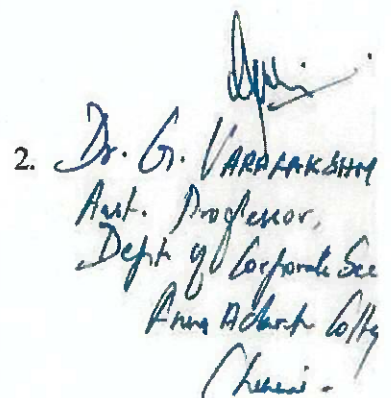 2. Dr. G. VARALAKSHMI
Asst. Professor,
Dept of Corporate Sec
Anna Adarsh College
Chennai -